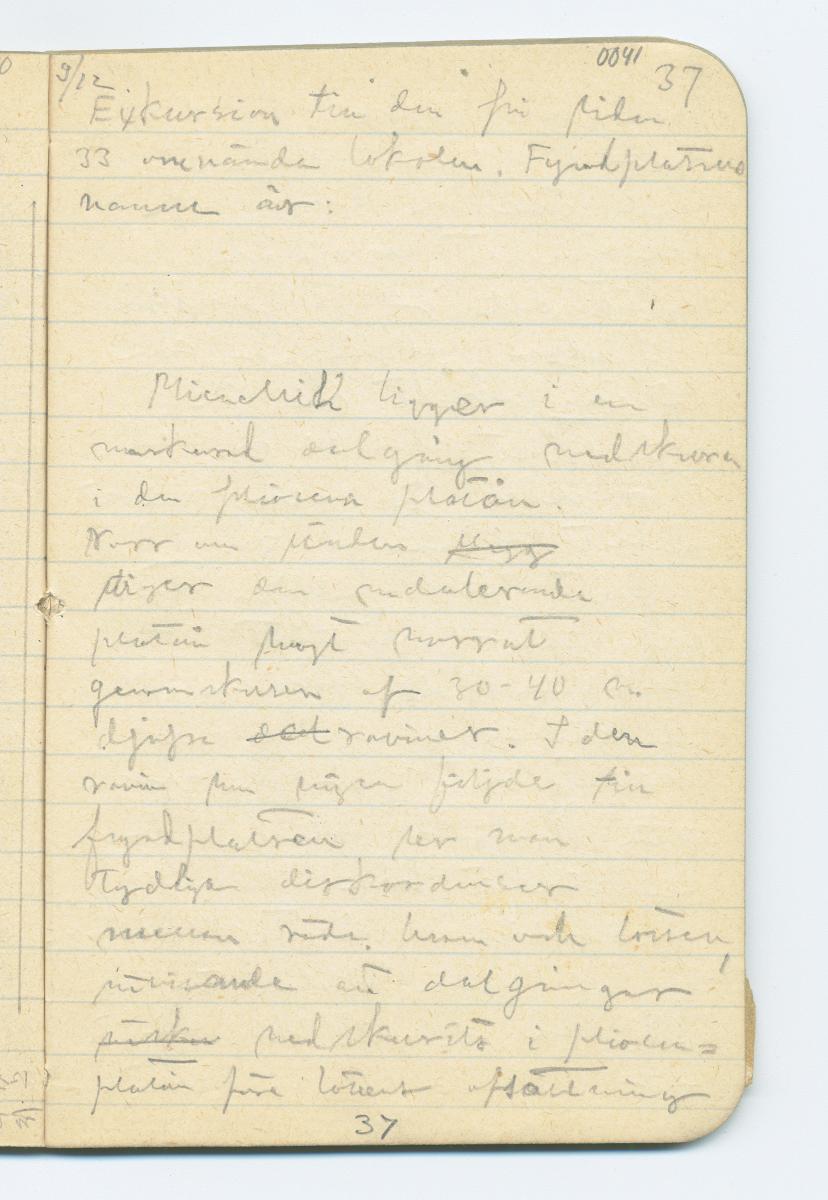 0041
37
9/12
Exkursion till den på sidan
33 omnämda lokalen. Fyndplatsens
namn är:
Mienchih ligger i en
markerad dalgång nedskuren
i den pliocena platån.
Norr om staden
stiger den undulerande
platån högt norrut
genomskuren af 30-40 m
djupa raviner. I den
ravin som vägen följde till
fyndplatsen ser man
tydliga diskordanser
mellan röda leran och lössen,
utvisande att dalgångar
nedskurits i pliocen=
platån före lössens afsättning
37